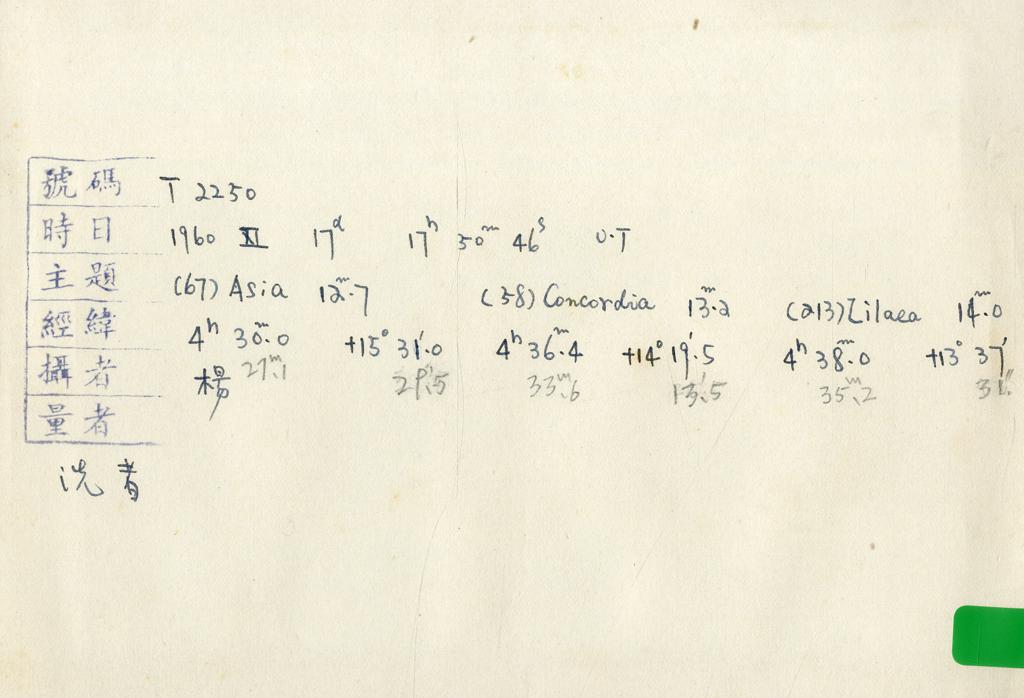 號碼 T 2250
時日 1960 XI 17ᵈ 17ʰ 50ᵐ 46ˢ U.T
主題 (67) Asia 12ᵐ.7 (58) Concordia 13ᵐ.2 (213) Lilaea 14ᵐ.0
經緯 4ʰ 30ᵐ.0 +15° 31'.0 4ʰ 36ᵐ.4 +14° 19'.5 4ʰ 38ᵐ.0 +13° 37'
27ᵐ.1 29'.5 33ᵐ.6 13'.5 35ᵐ.2
攝者 楊
量者
洗者